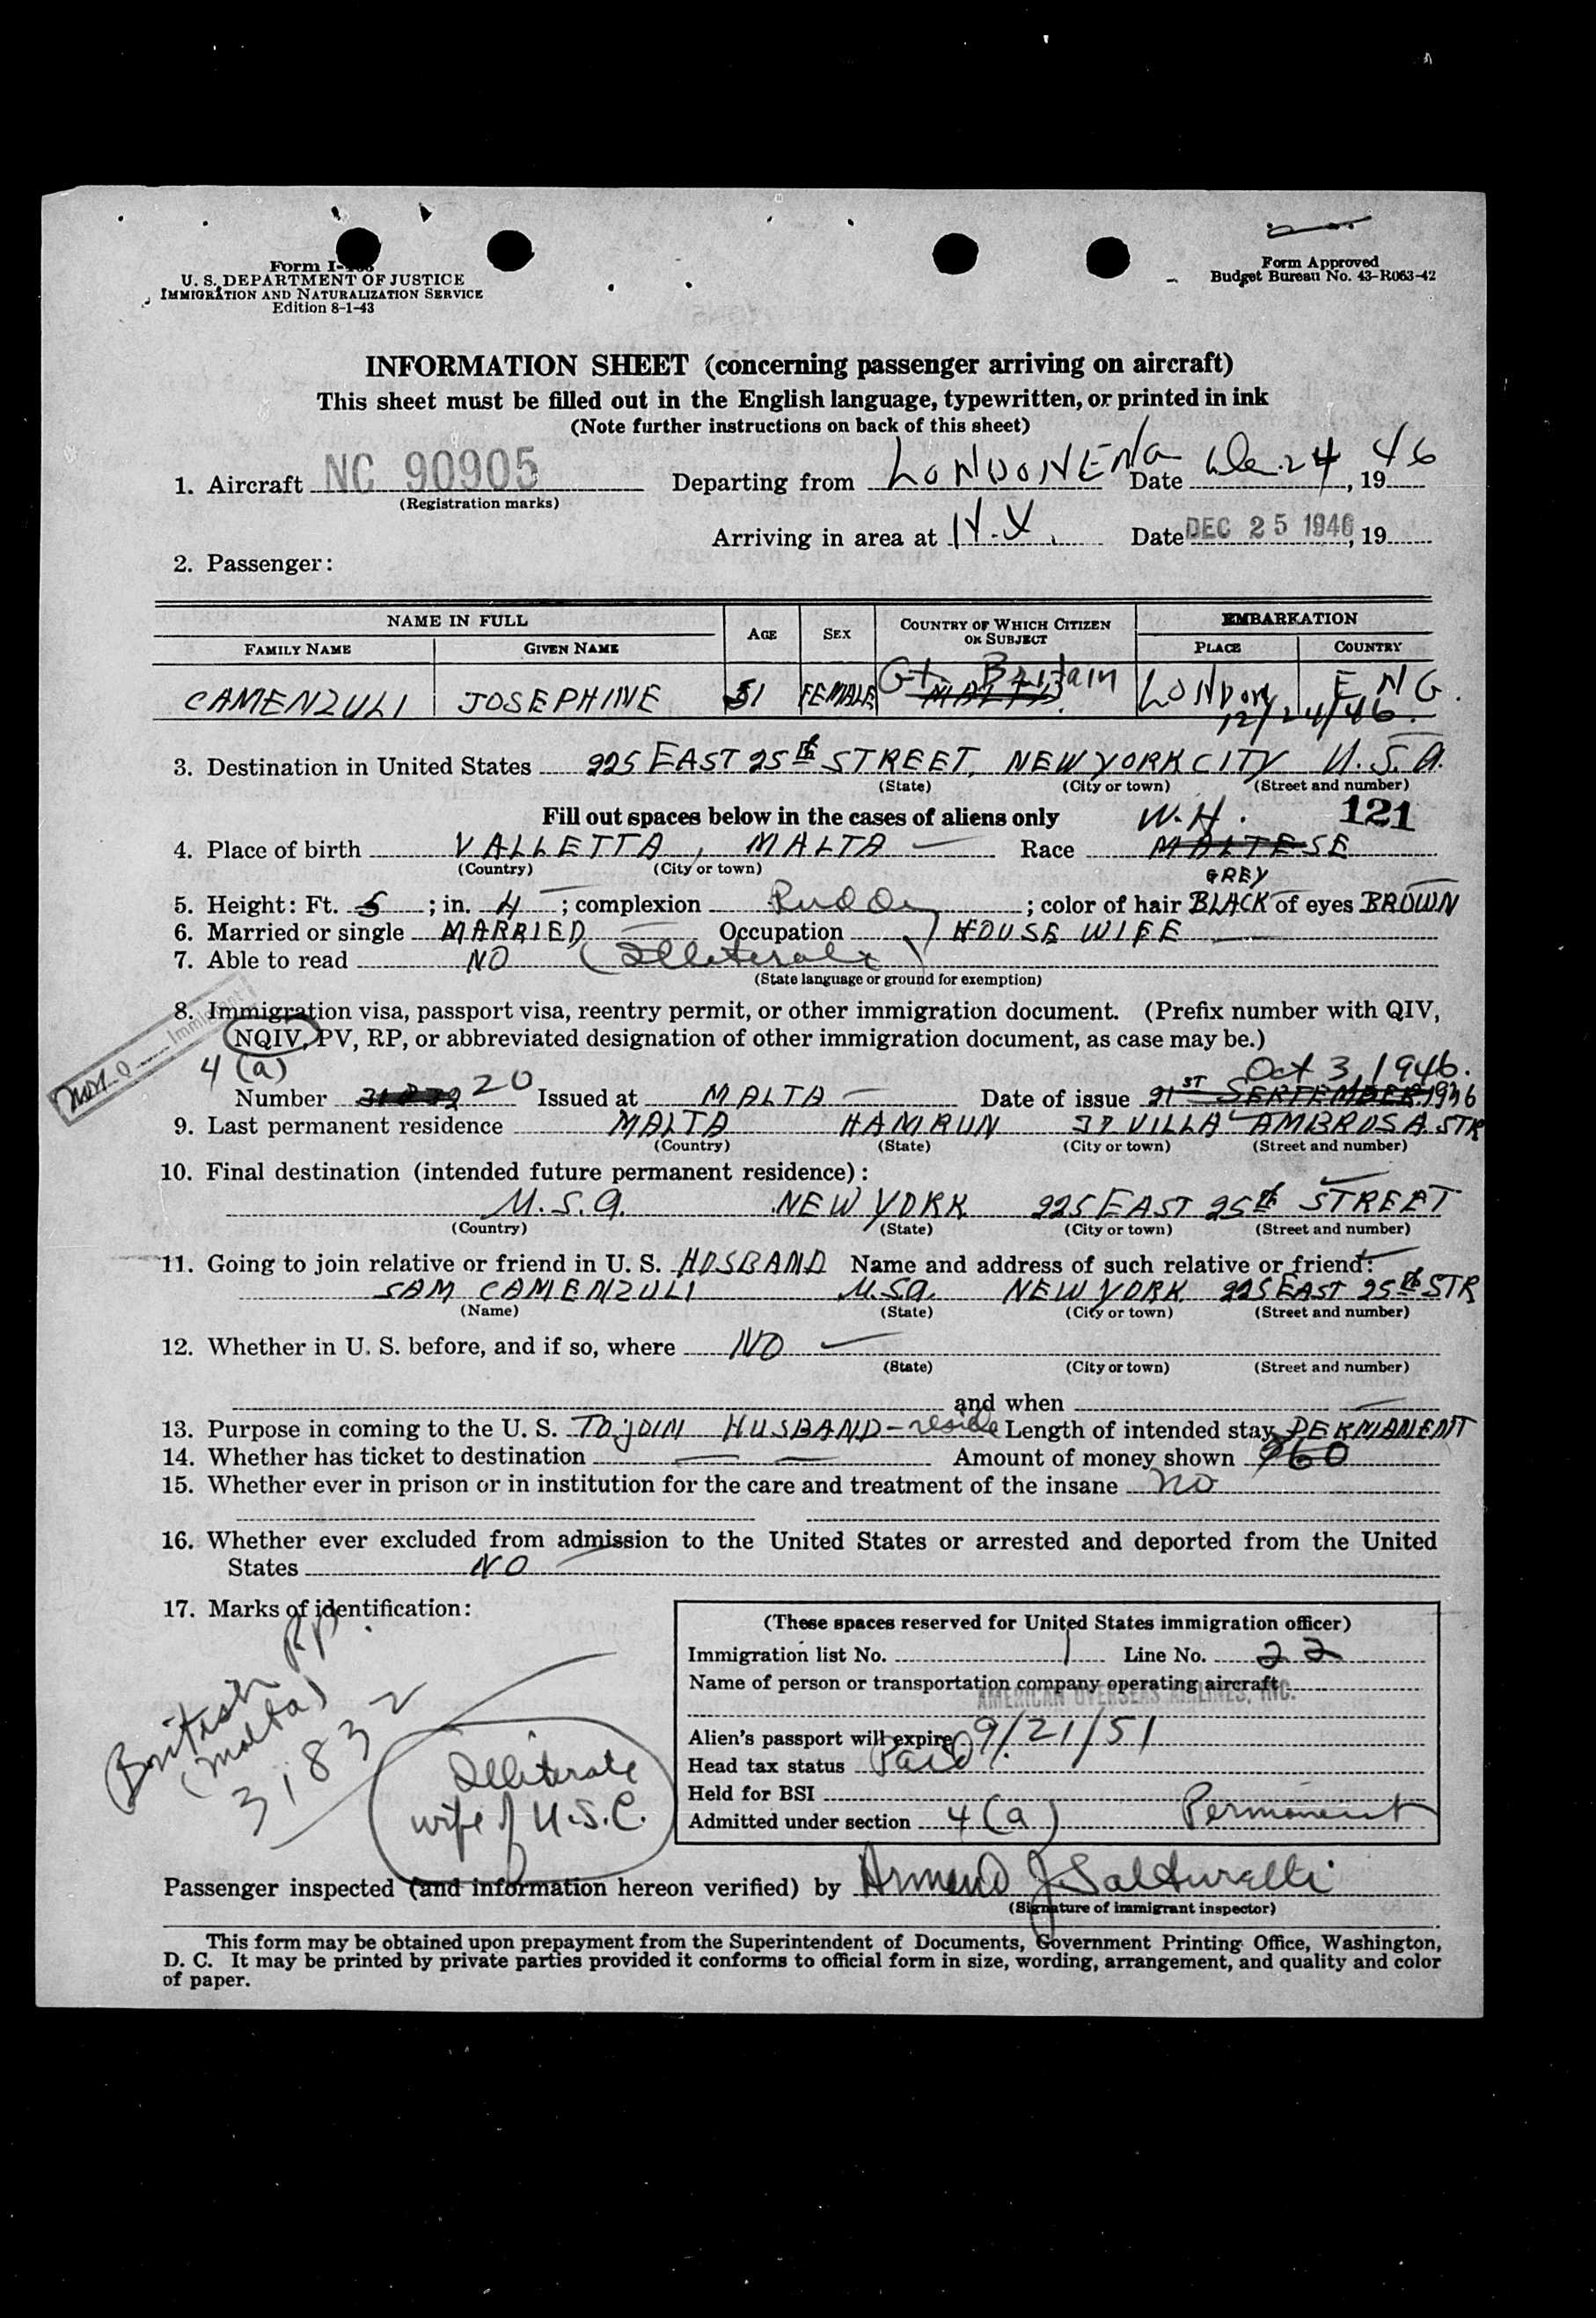 Form I-
U. S. DEPARTMENT OF JUSTICE
IMMIGRATION AND NATURALIZATION SERVICE
Edition 8-1-43
Form Approved
Budget Bureau No. 43-R063-42
INFORMATION SHEET (concerning passenger arriving on aircraft)
This sheet must be filled out in the English language, typewritten, or printed in ink
(Note further instructions on back of this sheet)
1. Aircraft NC 90905 Departing from LONDON ENG Date Dec. 24, 1946
(Registration marks)
Arriving in area at N.Y. Date DEC 25 1946, 19
2. Passenger:
NAME IN FULL AGE SEX COUNTRY OF WHICH CITIZEN OR SUBJECT EMBARKATION
FAMILY NAME GIVEN NAME PLACE COUNTRY
CAMENZULI JOSEPHINE 51 FEMALE Gt. Britain MALTA LONDON ENG.
12/24/46.
3. Destination in United States 225 EAST 25th STREET, NEW YORK CITY U.S.A.
(State) (City or town) (Street and number)
Fill out spaces below in the cases of aliens only W.H. 121
4. Place of birth VALLETTA, MALTA Race MALTESE
(Country) (City or town)
GREY
5. Height: Ft. 5; in. 4; complexion Ruddy; color of hair BLACK of eyes BROWN
6. Married or single MARRIED Occupation HOUSE WIFE
7. Able to read NO (Illiterate)
(State language or ground for exemption)
8. Immigration visa, passport visa, reentry permit, or other immigration document. (Prefix number with QIV,
NQIV, PV, RP, or abbreviated designation of other immigration document, as case may be.)
4 (a) Oct 3, 1946.
Number 20 Issued at MALTA Date of issue 21ST SEPTEMBER 1946
9. Last permanent residence MALTA HAMRUN 37 VILLA AMBROSA STR
(Country) (State) (City or town) (Street and number)
10. Final destination (intended future permanent residence):
U.S.A. NEW YORK 225 EAST 25th STREET
(Country) (State) (City or town) (Street and number)
11. Going to join relative or friend in U. S. HUSBAND Name and address of such relative or friend:
SAM CAMENZULI U.SA. NEW YORK 225 EAST 25th STR
(Name) (State) (City or town) (Street and number)
12. Whether in U. S. before, and if so, where NO
(State) (City or town) (Street and number)
and when
13. Purpose in coming to the U. S. TO JOIN HUSBAND - reside Length of intended stay PERMANENT
14. Whether has ticket to destination Amount of money shown 60
15. Whether ever in prison or in institution for the care and treatment of the insane no
16. Whether ever excluded from admission to the United States or arrested and deported from the United
States NO
17. Marks of identification:
British PP.
(Malta)
31832
Illiterate
wife of U.S.C.
(These spaces reserved for United States immigration officer)
Immigration list No. 1 Line No. 22
Name of person or transportation company operating aircraft
AMERICAN OVERSEAS AIRLINES, INC.
Alien's passport will expire 9/21/51
Head tax status Paid
Held for BSI
Admitted under section 4 (a) Permanent
Passenger inspected (and information hereon verified) by
(Signature of immigrant inspector)
This form may be obtained upon prepayment from the Superintendent of Documents, Government Printing Office, Washington,
D. C. It may be printed by private parties provided it conforms to official form in size, wording, arrangement, and quality and color
of paper.